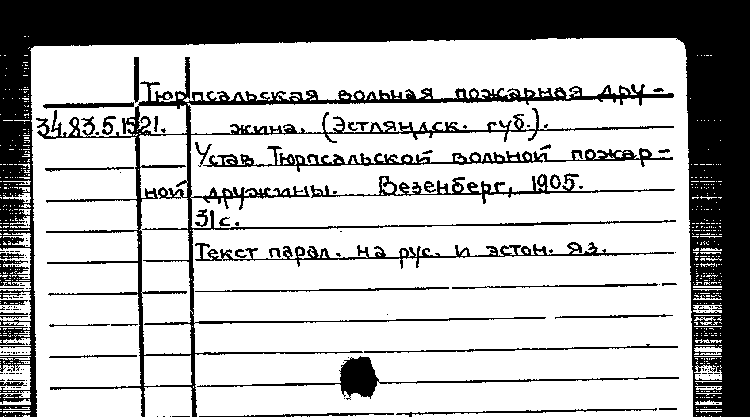 Тюрпсальская вольная пожарная дру-
34.83.5.1521. жина. (Эстляндск. губ.).
Устав Тюрпсальской вольной пожар-
ной дружины. Везенберг, 1905.
31 с.
Текст парал. на рус. и эстон. яз.